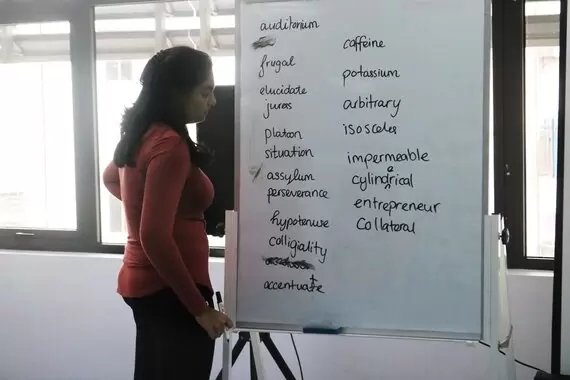 auditorium
frugal
elucidate
juress
platoon
situation
assylum
perseverance
hypotenuse
colligiality
accentuate
caffeine
potassium
arbitrary
isosceles
impermeable
cylindrical
entrepreneur
collateral